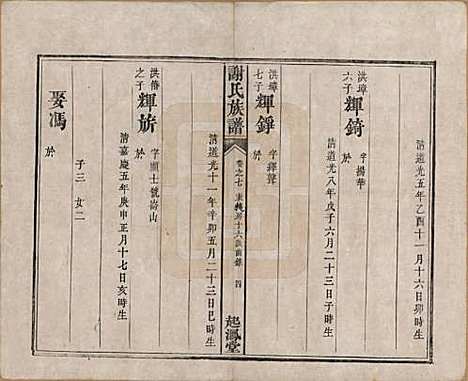 清道光五年乙酉十一月十六日卯時生
洪璋六子 輝錡 字揚華
於
清道光八年戊子六月二十三日子時生
洪璋七子 輝錚 字鐸聲
於
謝氏族譜
卷之七
四
起鳳堂
清道光十一年辛卯五月二十三日巳時生
洪 之子 輝旂 字 士號 山
於
清嘉慶五年庚申正月十七日亥時生
娶馮
於
子三 女二